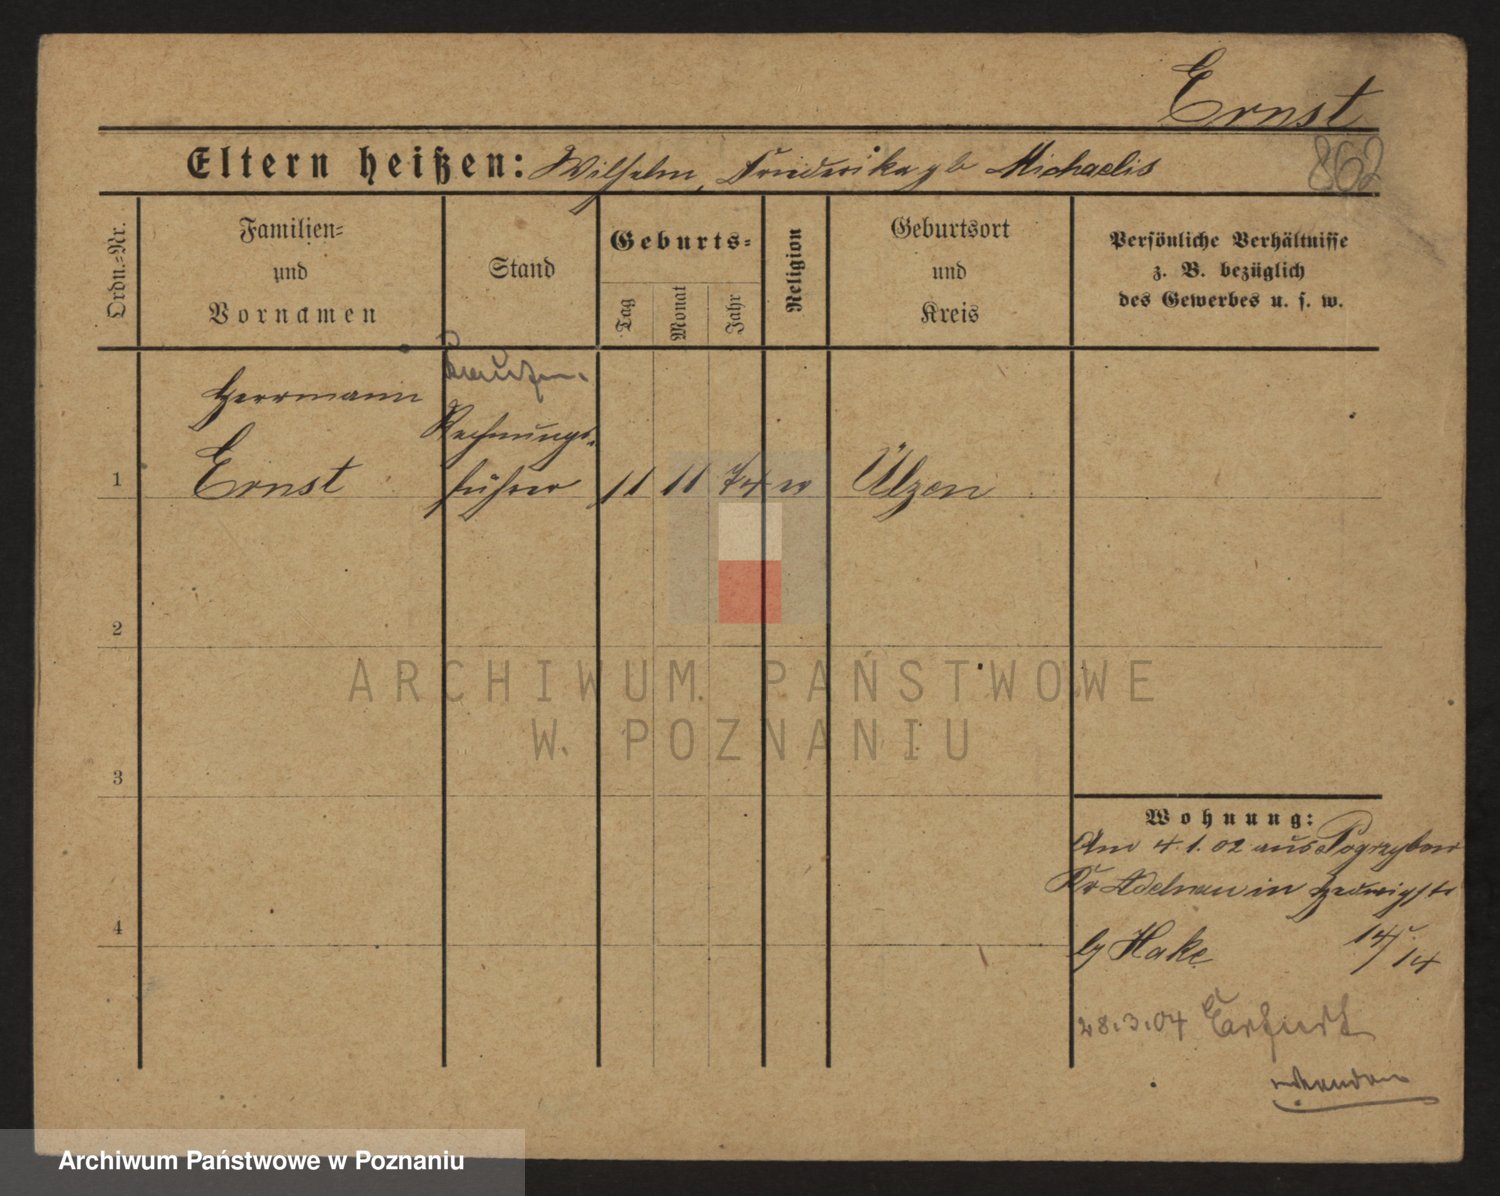 Ernst
862
Eltern heißen: Wilhelm, Friederika gb Michaelis
Ordn.-Nr.
Familien-
und
Vornamen
Stand
Geburts-
Tag
Monat
Jahr
Religion
Geburtsort
und
Kreis
Persönliche Verhältnisse
z. B. bezüglich
des Gewerbes u. s. w.
Herrmann
Rechnungs-
1 Ernst führer 11 11 74 ev Ülzen
2
3
4
ARCHIWUM PAŃSTWOWE
W POZNANIU
Wohnung:
Am 4.1.02 aus Pogrzybow
Kr Adelnau in Hedwigstr
by Hake 14/14
28.3.04 Erfurt
Archiwum Państwowe w Poznaniu